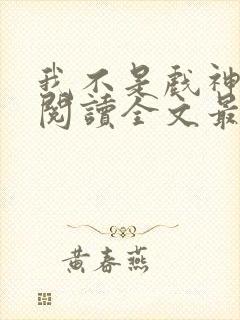 我不是戲神
閱讀全文最
黃春燕